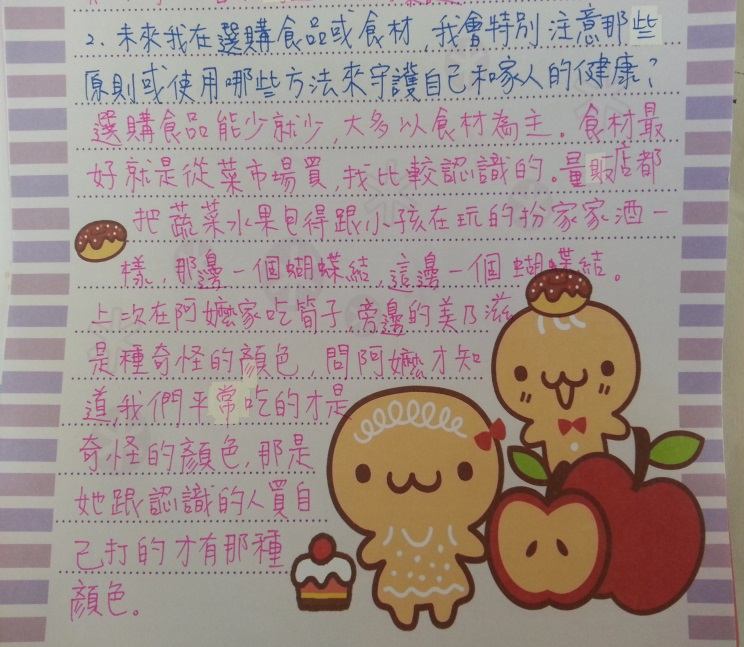 2. 未來我在選購食品或食材，我會特別注意那些
原則或使用哪些方法來守護自己和家人的健康？
選購食品能少就少，大多以食材為主。食材最
好就是從菜市場買，找比較認識的。量販店都
把蔬菜水果包得跟小孩在玩的扮家家酒一
樣，那邊一個蝴蝶結，這邊一個蝴蝶結。
上次在阿嬤家吃筍子，旁邊的美乃滋
是種奇怪的顏色，問阿嬤才知
道，我們平常吃的才是
奇怪的顏色，那是
她跟認識的人買自
己打的才有那種
顏色。